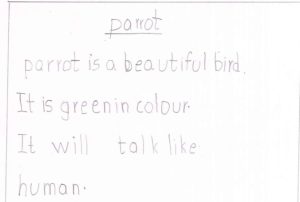 parrot
parrot is a beautiful bird.
It is green in colour.
It will talk like
human.